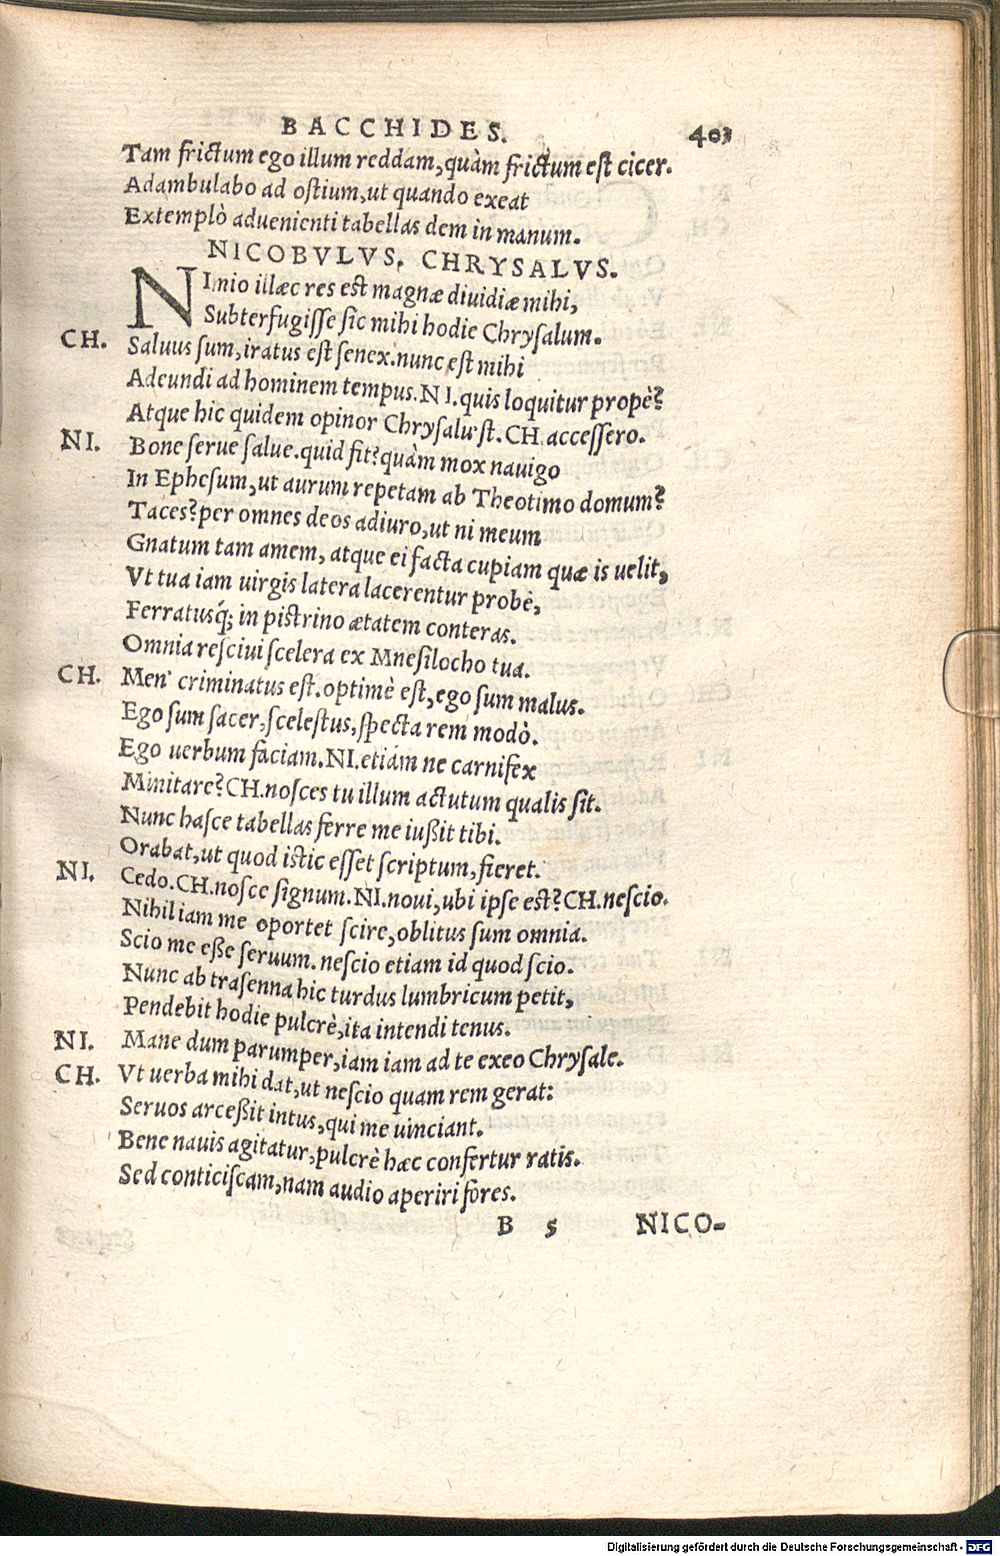 BACCHIDES. 403
Tam frictum ego illum reddam, quàm frictum est cicer.
Adambulabo ad ostium, ut quando exeat
Extemplò aduenienti tabellas dem in manum.
NICOBVLVS. CHRYSALVS.
NImio illæc res est magnæ diuidiæ mihi,
Subterfugisse sic mihi hodie Chrysalum.
CH. Saluus sum, iratus est senex. nunc est mihi
Adeundi ad hominem tempus. NI. quis loquitur propè?
Atque hic quidem opinor Chrysalu'st. CH. accessero.
NI. Bone serue salue. quid fit? quàm mox nauigo
In Ephesum, ut aurum repetam ab Theotimo domum?
Taces? per omnes deos adiuro, ut ni meum
Gnatum tam amem, atque ei facta cupiam quæ is uelit,
Vt tua iam uirgis latera lacerentur probè,
Ferratusq́; in pistrino ætatem conteras.
Omnia resciui scelera ex Mnesilocho tua.
CH. Men' criminatus est. optimè est, ego sum malus.
Ego sum sacer, scelestus, specta rem modò.
Ego uerbum faciam. NI. etiam ne carnifex
Minitare? CH. nosces tu illum actutum qualis sit.
Nunc hasce tabellas ferre me iußit tibi.
Orabat, ut quod istic esset scriptum, fieret.
NI. Cedo. CH. nosce signum. NI. noui, ubi ipse est? CH. nescio.
Nihil iam me oportet scire, oblitus sum omnia.
Scio me eße seruum. nescio etiam id quod scio.
Nunc ab trasenna hic turdus lumbricum petit,
Pendebit hodie pulcrè, ita intendi tenus.
NI. Mane dum parumper, iam iam ad te exeo Chrysale.
CH. Vt uerba mihi dat, ut nescio quam rem gerat:
Seruos arceßit intus, qui me uinciant.
Bene nauis agitatur, pulcrè hæc confertur ratis.
Sed conticiscam, nam audio aperiri fores.
B 5 NICO-
Digitalisierung gefördert durch die Deutsche Forschungsgemeinschaft - DFG